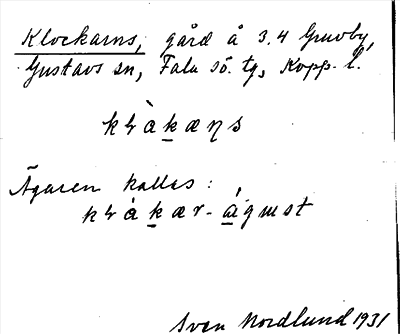 Klockarns, gård å 3.4 Gruvby,
Gustavs sn, Falu sö. tg, Kopp. l.
Ägaren kallas:
Sven Nordlund 1931